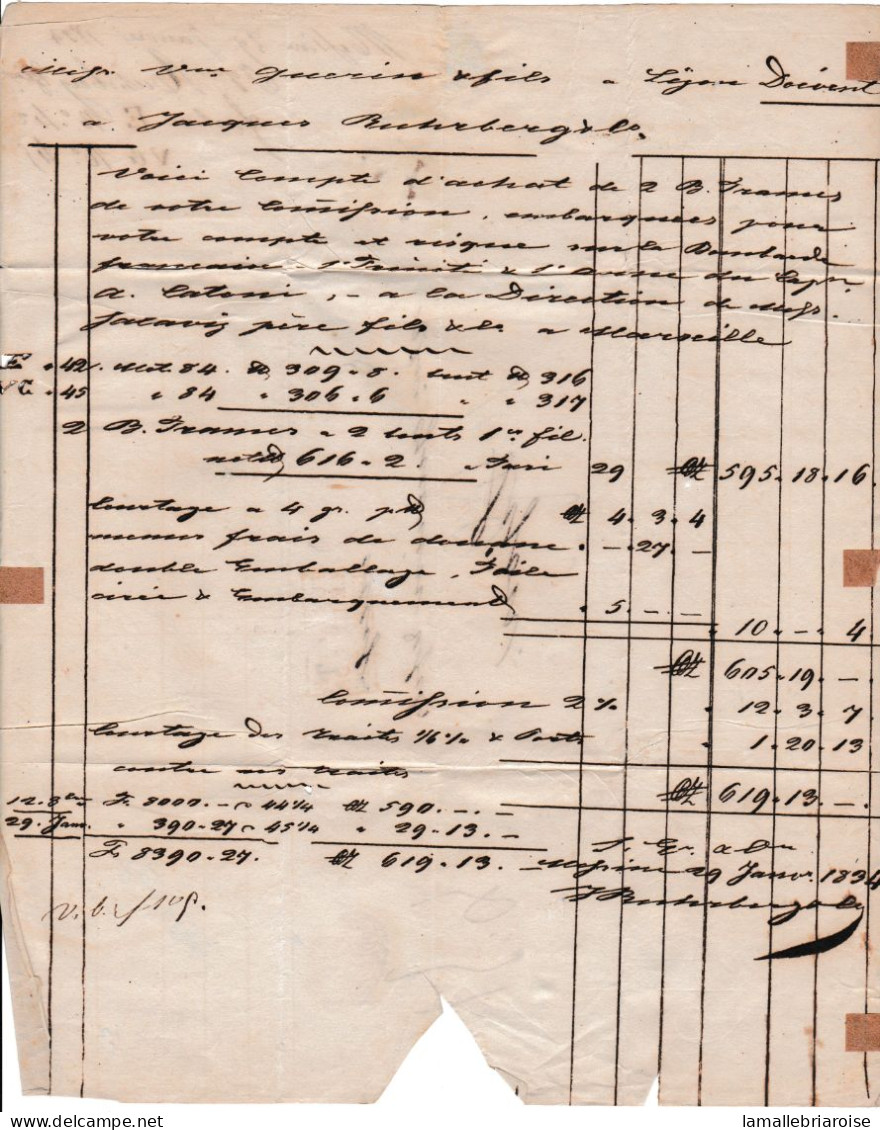 Messrs Vve Guerin & fils a Lÿon Doivent
a Jacques Ruhrberg & Co.
Voici Compte d'achat de 2 B. Trames
de votre Commission, embarquées pour
votre compte et risque sur la Bombarde
francaise Ste Trinité & Ste Anne du Capne
A. Catoni, - a la Direction de Messrs.
père fils & Co a Marseille
42. Mot. 84. ℔ 309.8. ℔ 316
45 " 84 " 306.6 " " 317
2 B. Trames a 2 bouts 1re fil.
net ℔ 616.2. a Tari 29 Oz 595.18.16.
Courtage a 4 gr. p ℔ Oz 4.3.4
menus frais de douane " -.27.-
double Emballage, Toile
cirée & Embarquement " 5.-.-
" 10.-.4
Oz 605.19.-.
Commission 2 % " 12.3.7
Courtage des traites 1/6 % & Ports " 1.20.13
contre nos traites
Oz 619.13.-.
12. 8bre F. 8000.- a 44 1/4 Oz 590.-.-
29. Janv. " 390.27 a 45 1/4 " 29.13.-
F. 8390.27. Oz 619.13.-
S. E. & On
Messine 29 Janv. 1834
J Ruhrberg & Co
lamallebriaroise